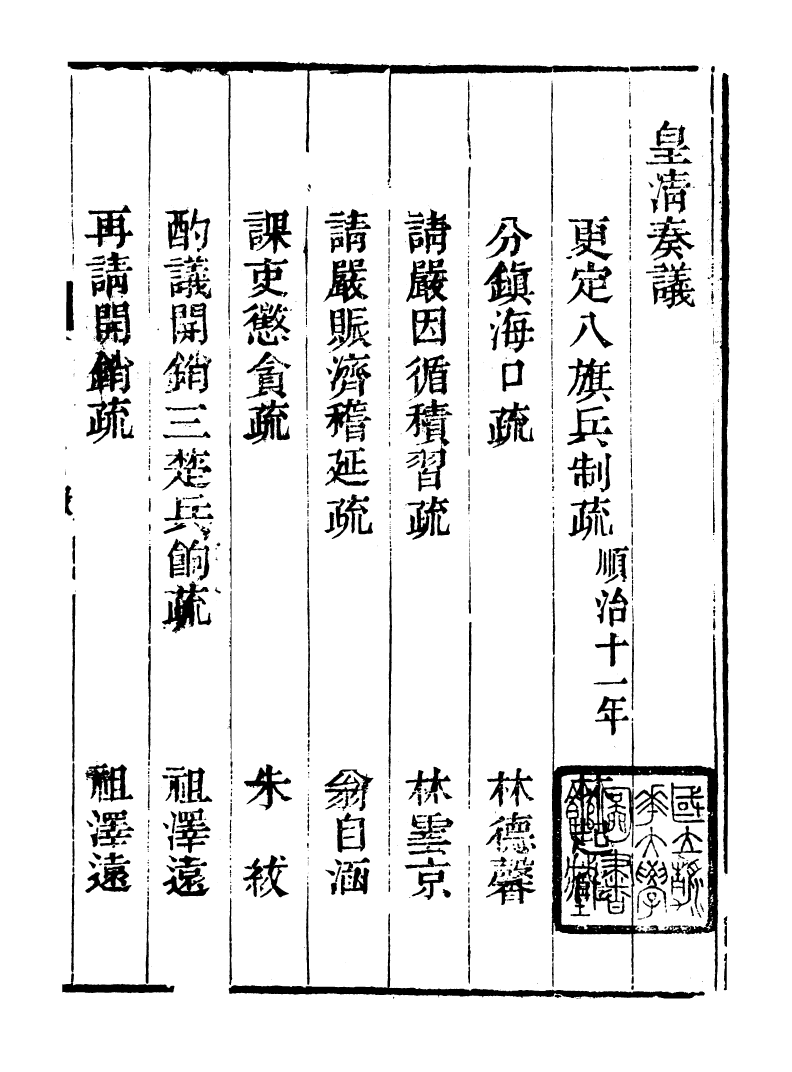 皇清奏議
更定八旗兵制疏 順治十一年
分鎮海口疏 林德馨
請嚴因循積習疏 林雲京
請嚴賑濟稽延疏 翁自涵
課吏懲貪疏 朱紱
酌議開銷三楚兵餉疏 祖澤遠
再請開銷疏 祖澤遠
國立清
華大學
圖書
館藏